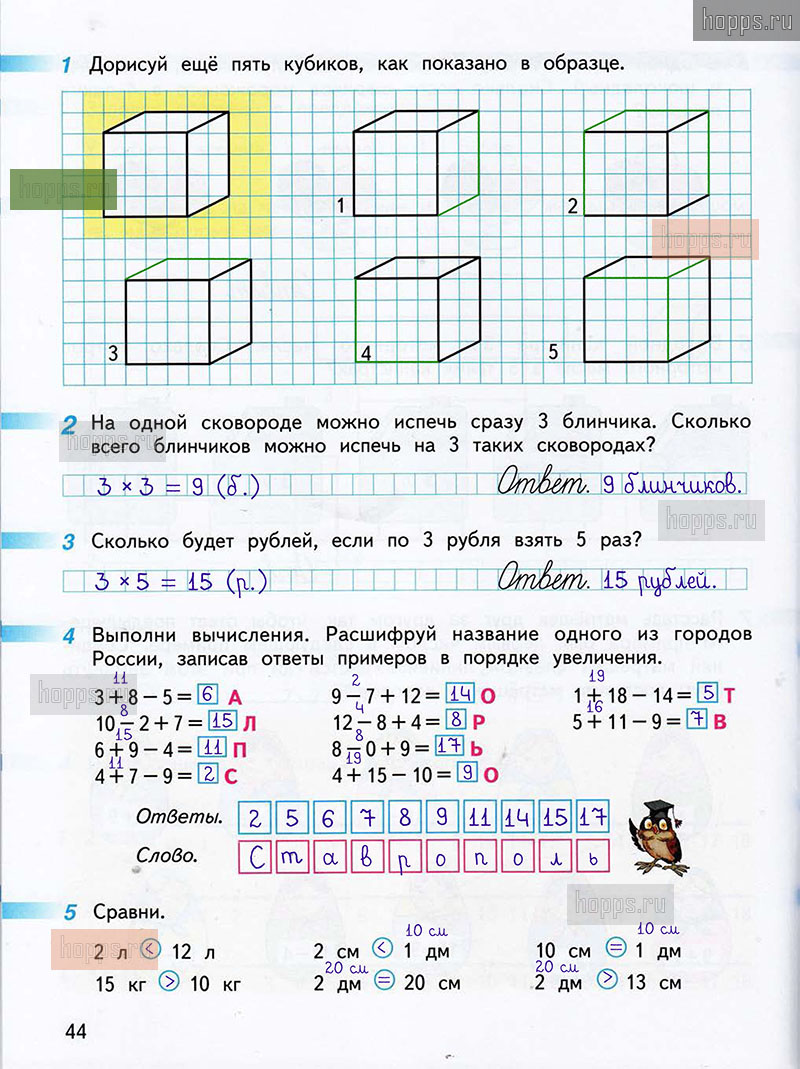 hopps.ru
1 Дорисуй ещё пять кубиков, как показано в образце.
hopps.ru
1
2
hopps.ru
3
4
5
2 На одной сковороде можно испечь сразу 3 блинчика. Сколько
hopps.ru
всего блинчиков можно испечь на 3 таких сковородах?
3 × 3 = 9 (б.) Ответ. 9 блинчиков.
hopps.ru
3 Сколько будет рублей, если по 3 рубля взять 5 раз?
3 × 5 = 15 (р.) Ответ. 15 рублей.
4 Выполни вычисления. Расшифруй название одного из городов
России, записав ответы примеров в порядке увеличения.
11 2 19
3 + 8 − 5 = 6 А 9 − 7 + 12 = 14 О 1 + 18 − 14 = 5 Т
hopps.ru
8 4 16
10 − 2 + 7 = 15 Л 12 − 8 + 4 = 8 Р 5 + 11 − 9 = 7 В
15 8
6 + 9 − 4 = 11 П 8 − 0 + 9 = 17 Ь
11 19
4 + 7 − 9 = 2 С 4 + 15 − 10 = 9 О
Ответы. 2 5 6 7 8 9 11 14 15 17
Слово. С т а в р о п о л ь
hopps.ru
5 Сравни.
10 см 10 см
2 л < 12 л 2 см < 1 дм 10 см = 1 дм
hopps.ru
20 см 20 см
15 кг > 10 кг 2 дм = 20 см 2 дм > 13 см
44